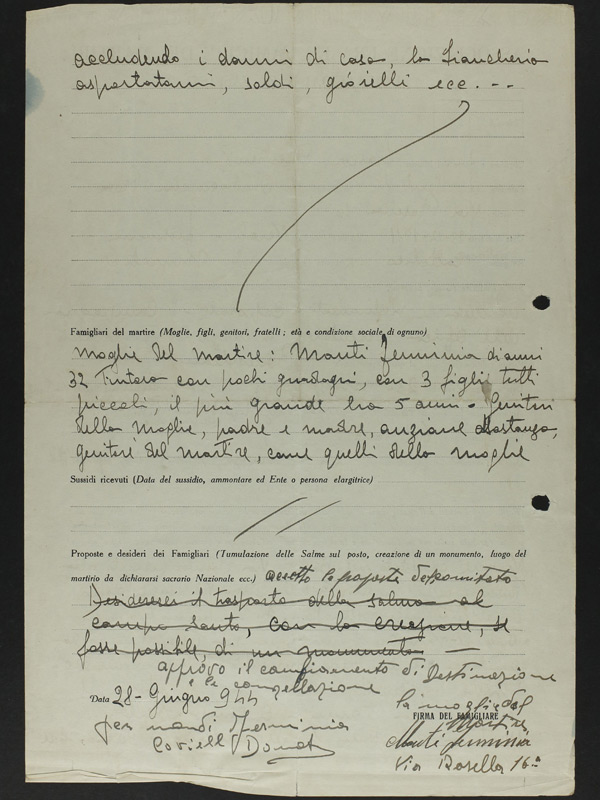 accludendo i danni di casa, la biancheria
asportatami, soldi, gioielli ecc. --
Famigliari del martire (Moglie, figli, genitori, fratelli; età e condizione sociale di ognuno)
Moglie del martire: Manti Jerminia di anni
32 Tintora con pochi guadagni, con 3 figli tutti
piccoli, il più grande ha 5 anni - Genitori
della moglie, padre e madre, anziane abbastanza,
genitori del martire, come quelli della moglie
Sussidi ricevuti (Data del sussidio, ammontare ed Ente o persona elargitrice)
Proposte e desideri dei Famigliari (Tumulazione delle Salme sul posto, creazione di un monumento, luogo del
martirio da dichiararsi sacrario Nazionale ecc.) accetto le proposte del comitato
Desidererei il trasporto della salma al
campo santo, con la creazione, se
fosse possibile, di un monumento —
approvo il cambiamento di Destinazione
e la cancellazione
Data 28 - Giugno 944
la moglie del
FIRMA DEL FAMIGLIARE
Martire
per Jerminia
Manti Jerminia
Via Rosella 16